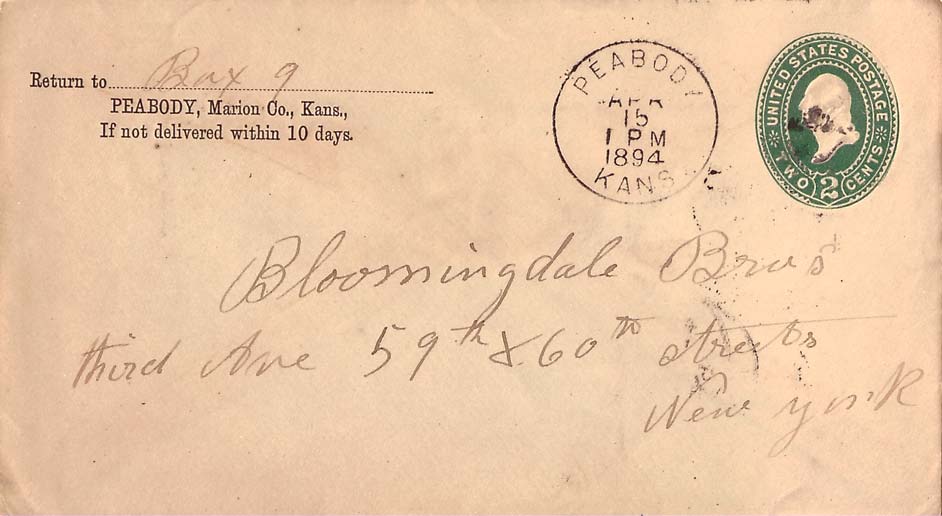 Return to Box 9
PEABODY, Marion Co., Kans.,
If not delivered within 10 days.
PEABODY
APR
15
1 PM
1894
KANS
UNITED STATES POSTAGE
TWO 2 CENTS
Bloomingdale Bros
third Ave 59th & 60th streets
New york